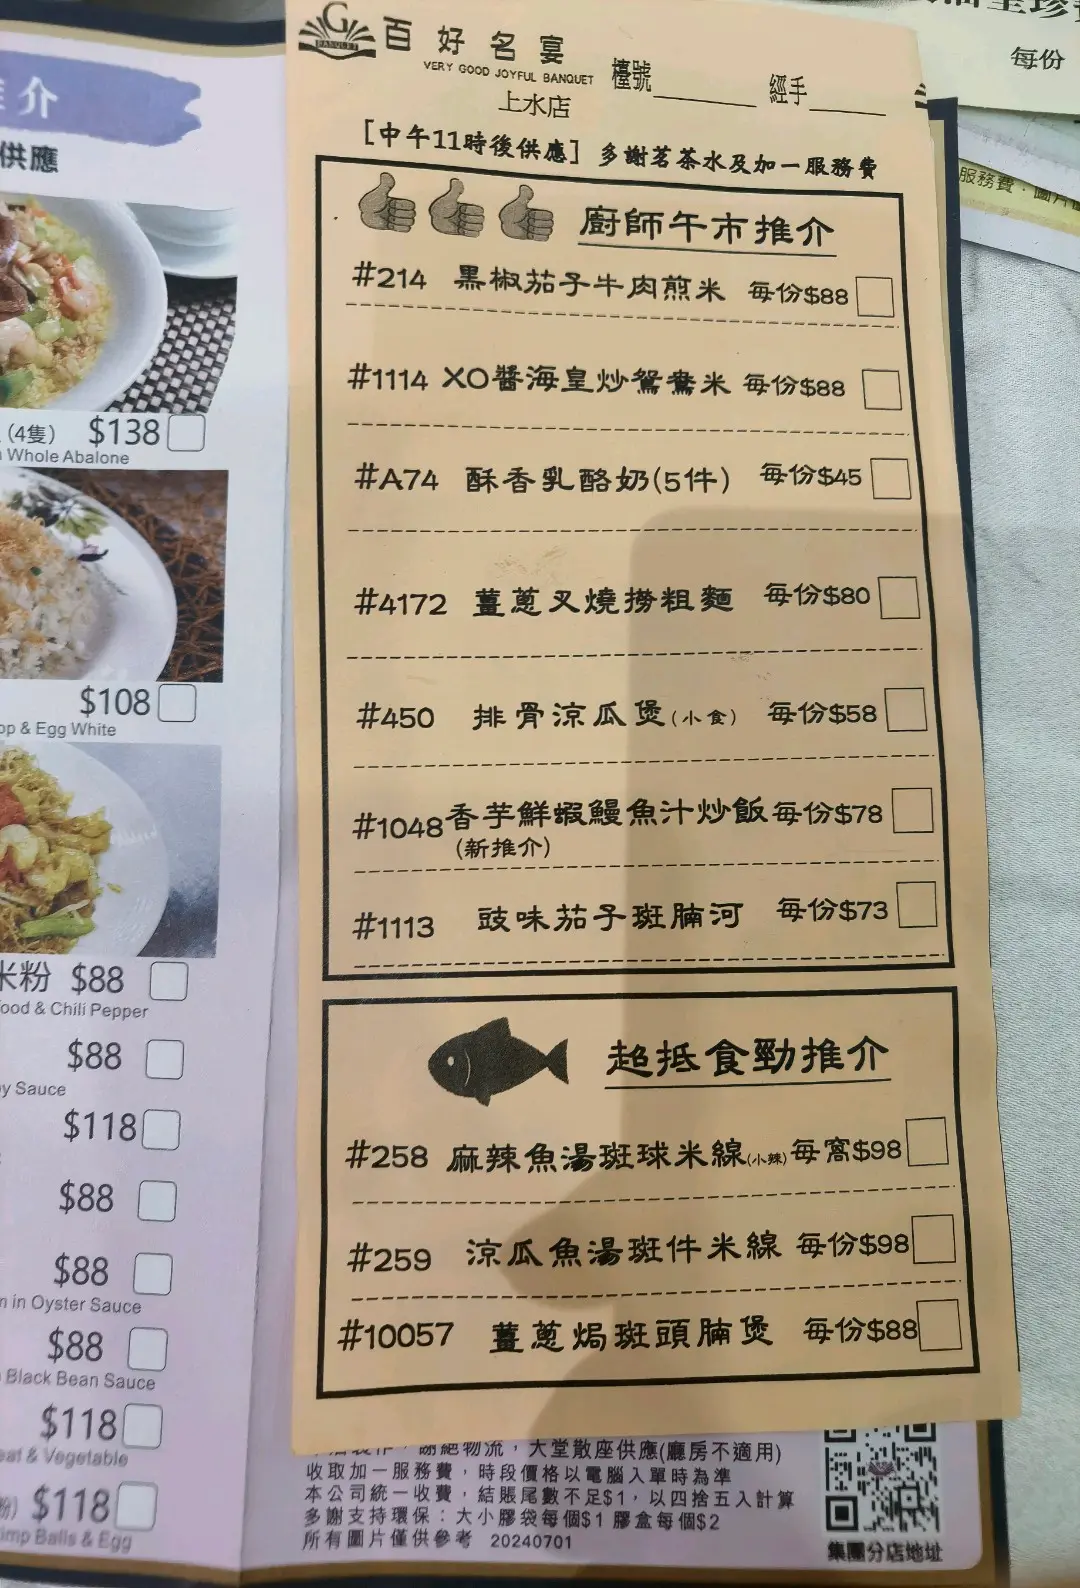 百好名宴
VERY GOOD JOYFUL BANQUET
BANQUET
上水店
檯號 經手
[中午11時後供應] 多謝茗茶水及加一服務費
廚師午市推介
#214 黑椒茄子牛肉煎米 每份$88
#1114 XO醬海皇炒鴛鴦米 每份$88
#A74 酥香乳酪奶(5件) 每份$45
#4172 薑蔥叉燒撈粗麵 每份$80
#450 排骨涼瓜煲(小食) 每份$58
#1048 香芋鮮蝦鰻魚汁炒飯 每份$78
(新推介)
#1113 豉味茄子斑腩河 每份$73
超抵食勁推介
#258 麻辣魚湯斑球米線(小辣) 每窩$98
#259 涼瓜魚湯斑件米線 每份$98
#10057 薑蔥焗斑頭腩煲 每份$88
謝絕物流，大堂散座供應(廳房不適用)
收取加一服務費，時段價格以電腦入單時為準
本公司統一收費，結賬尾數不足$1，以四捨五入計算
多謝支持環保：大小膠袋每個$1 膠盒每個$2
所有圖片僅供參考 20240701
集團分店地址
介
供應
(4隻) $138
Whole Abalone
$108
& Egg White
米粉 $88
ood & Chili Pepper
$88
y Sauce
$118
$88
$88
in Oyster Sauce
$88
Black Bean Sauce
$118
eat & Vegetable
$118
imp Balls & Egg
每份
服務費